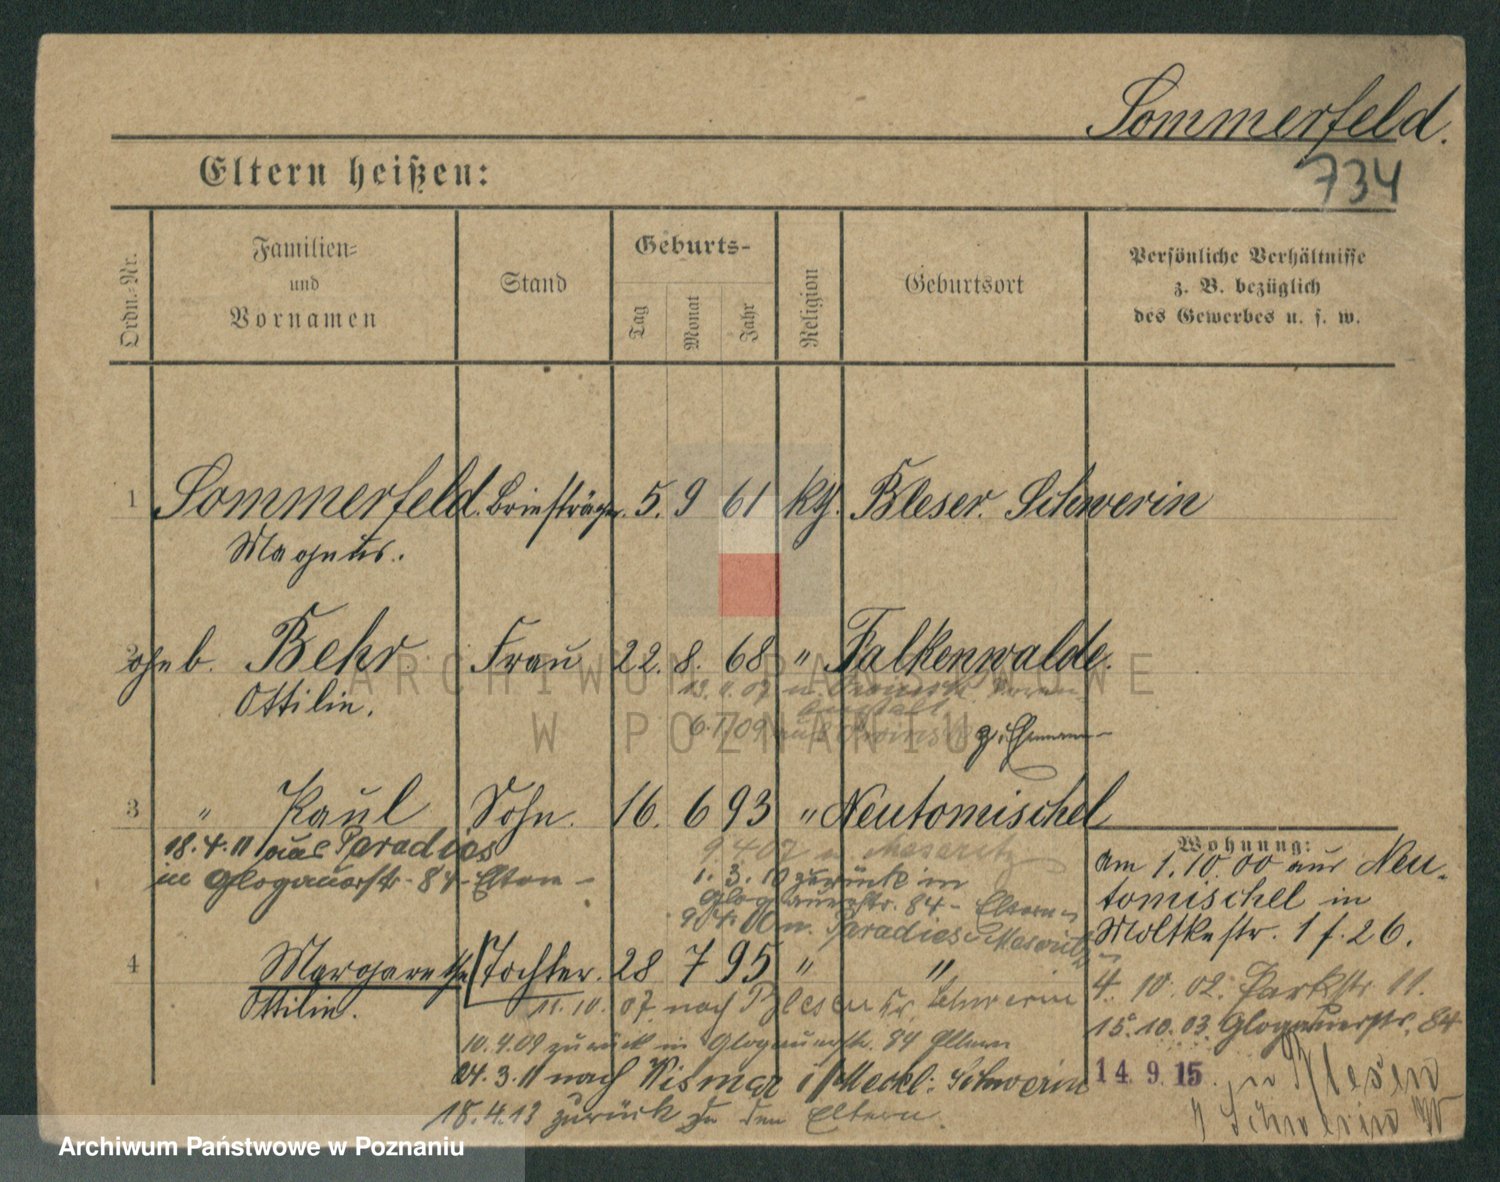 Sommerfeld.
734
Eltern heißen:
Ordn.-Nr.
Familien-
und
Vornamen
Stand
Geburts-
Tag
Monat
Jahr
Religion
Geburtsort
Persönliche Verhältnisse
z. B. bezüglich
des Gewerbes u. s. w.
1 Sommerfeld. Briefträger. 5. 9 61 kth. Bleser. Schwerin
Magnus.
2 geb. Behr Frau 22. 8. 68 " Falkenwalde.
Ottilie.
6.1.09 z. Ehemann
3 " Paul Sohn. 16. 6 93 " Neutomischel
18.4.11 aus Paradies
in Glogauerstr. 84 - Eltern -
9 4 07 n. Meseritz
1. 3. 10 zurück in
Glogauerstr. 84 - Eltern
n. Paradies Meseritz
4 Margarethe Tochter. 28 7 95 " "
Ottilie.
11. 10. 07 nach Blesen Kr. Schwerin
10.4.09 zurück in Glogauerstr. 84 Eltern
24.3.11 nach Wismar i/Meckl. Schwerin
18.4.13 zurück zu den Eltern.
Wohnung:
Am 1.10.00 aus Neu-
tomischel in
Moltkestr. 1 f. 26.
4. 10. 02. Parkstr 11.
15.10.03 Glogauerstr. 84
14. 9. 15. n Blesen
Schwerin W
ARCHIWUM PAŃSTWOWE
W POZNANIU
Archiwum Państwowe w Poznaniu